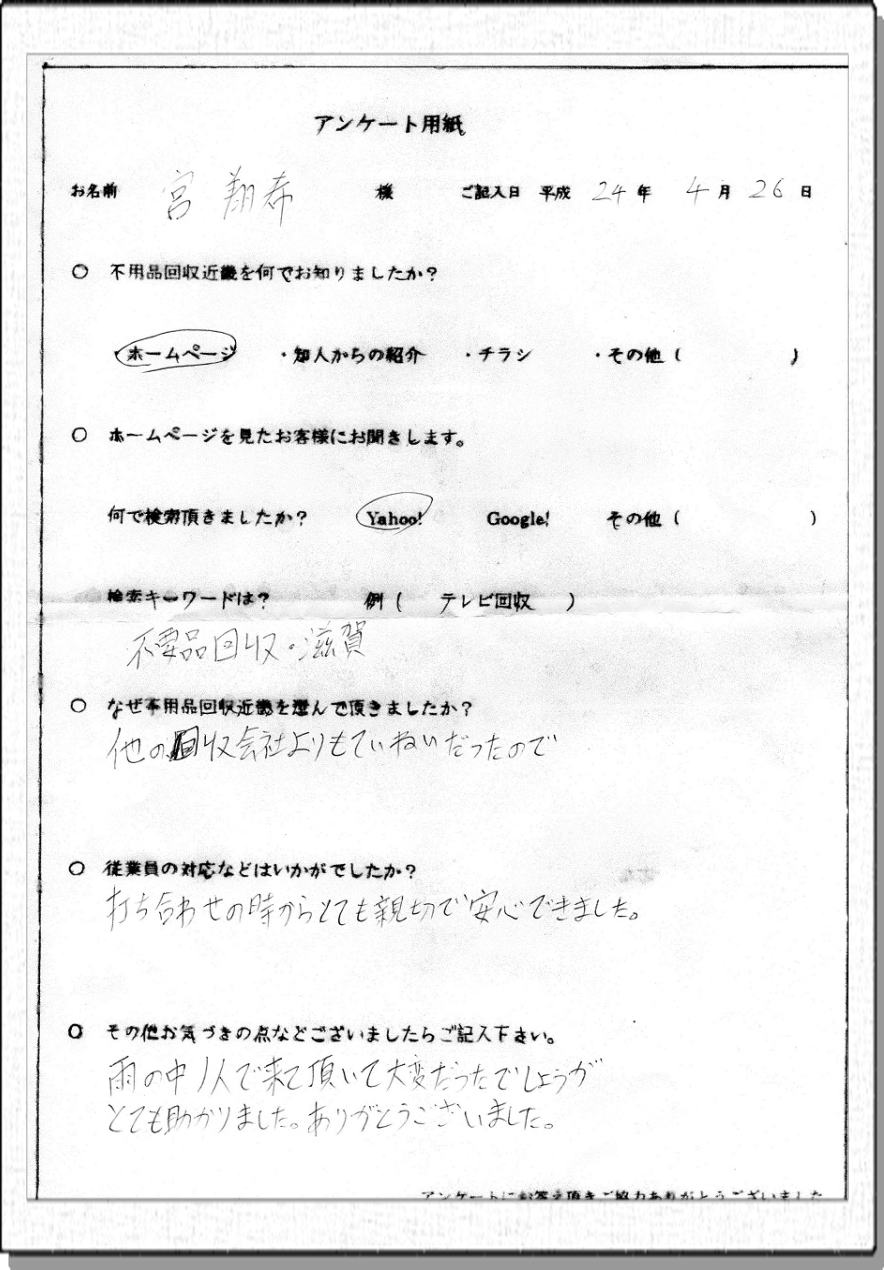 アンケート用紙
お名前 宮 翔希 様 ご記入日 平成 24 年 4 月 26 日
○ 不用品回収近畿を何でお知りましたか？
・ホームページ ・知人からの紹介 ・チラシ ・その他 ( )
○ ホームページを見たお客様にお聞きします。
何で検索頂きましたか？ Yahoo! Google! その他 ( )
検索キーワードは？ 例 ( テレビ回収 )
不要品回収・滋賀
○ なぜ不用品回収近畿を選んで頂きましたか？
他の回収会社よりもていねいだったので
○ 従業員の対応などはいかがでしたか？
打ち合わせの時からとても親切で安心できました。
○ その他お気づきの点などございましたらご記入下さい。
雨の中1人で来て頂いて大変だったでしょうが
とても助かりました。ありがとうございました。
アンケートにお答え頂きご協力ありがとうございました